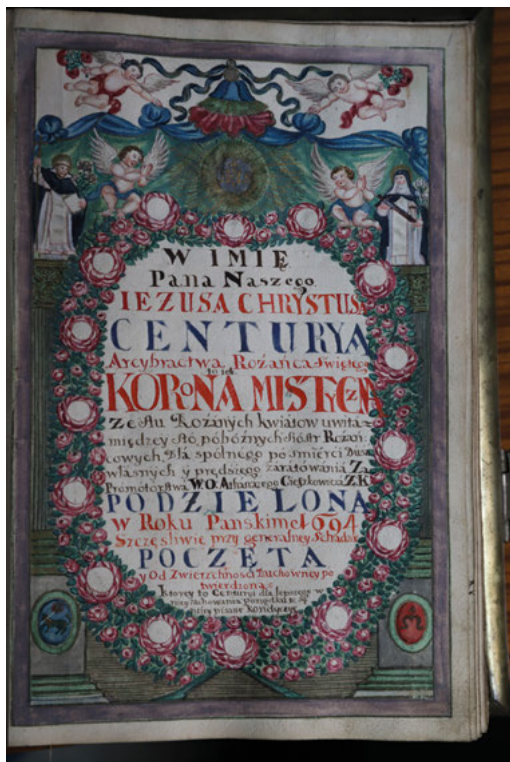 W IMIĘ
Pana Naszego
IEZUSA CHRYSTUSA
CENTURYA
Arcybractwa Rożańca Świętego
to iest
KORONA MISTYCZNA
Ze stu Rożanych kwiatow uwita
między sto pobożnych Siostr Rożań:
cowych, dla spolnego po śmierci Dusz
własnych y prędszego zaratowania Za
Promotorstwa W.O. Athanazego Cieszkowica Z.K
PODZIELONA
w Roku Panskim 1694
Szczęsliwie przy generalney Schadzce
POCZĘTA
y Od Zwierzchności Duchowney po
twierdzona
Ktorey to Centuryi dla lepszego w
niey zachowania porządku
pisane Kondycye